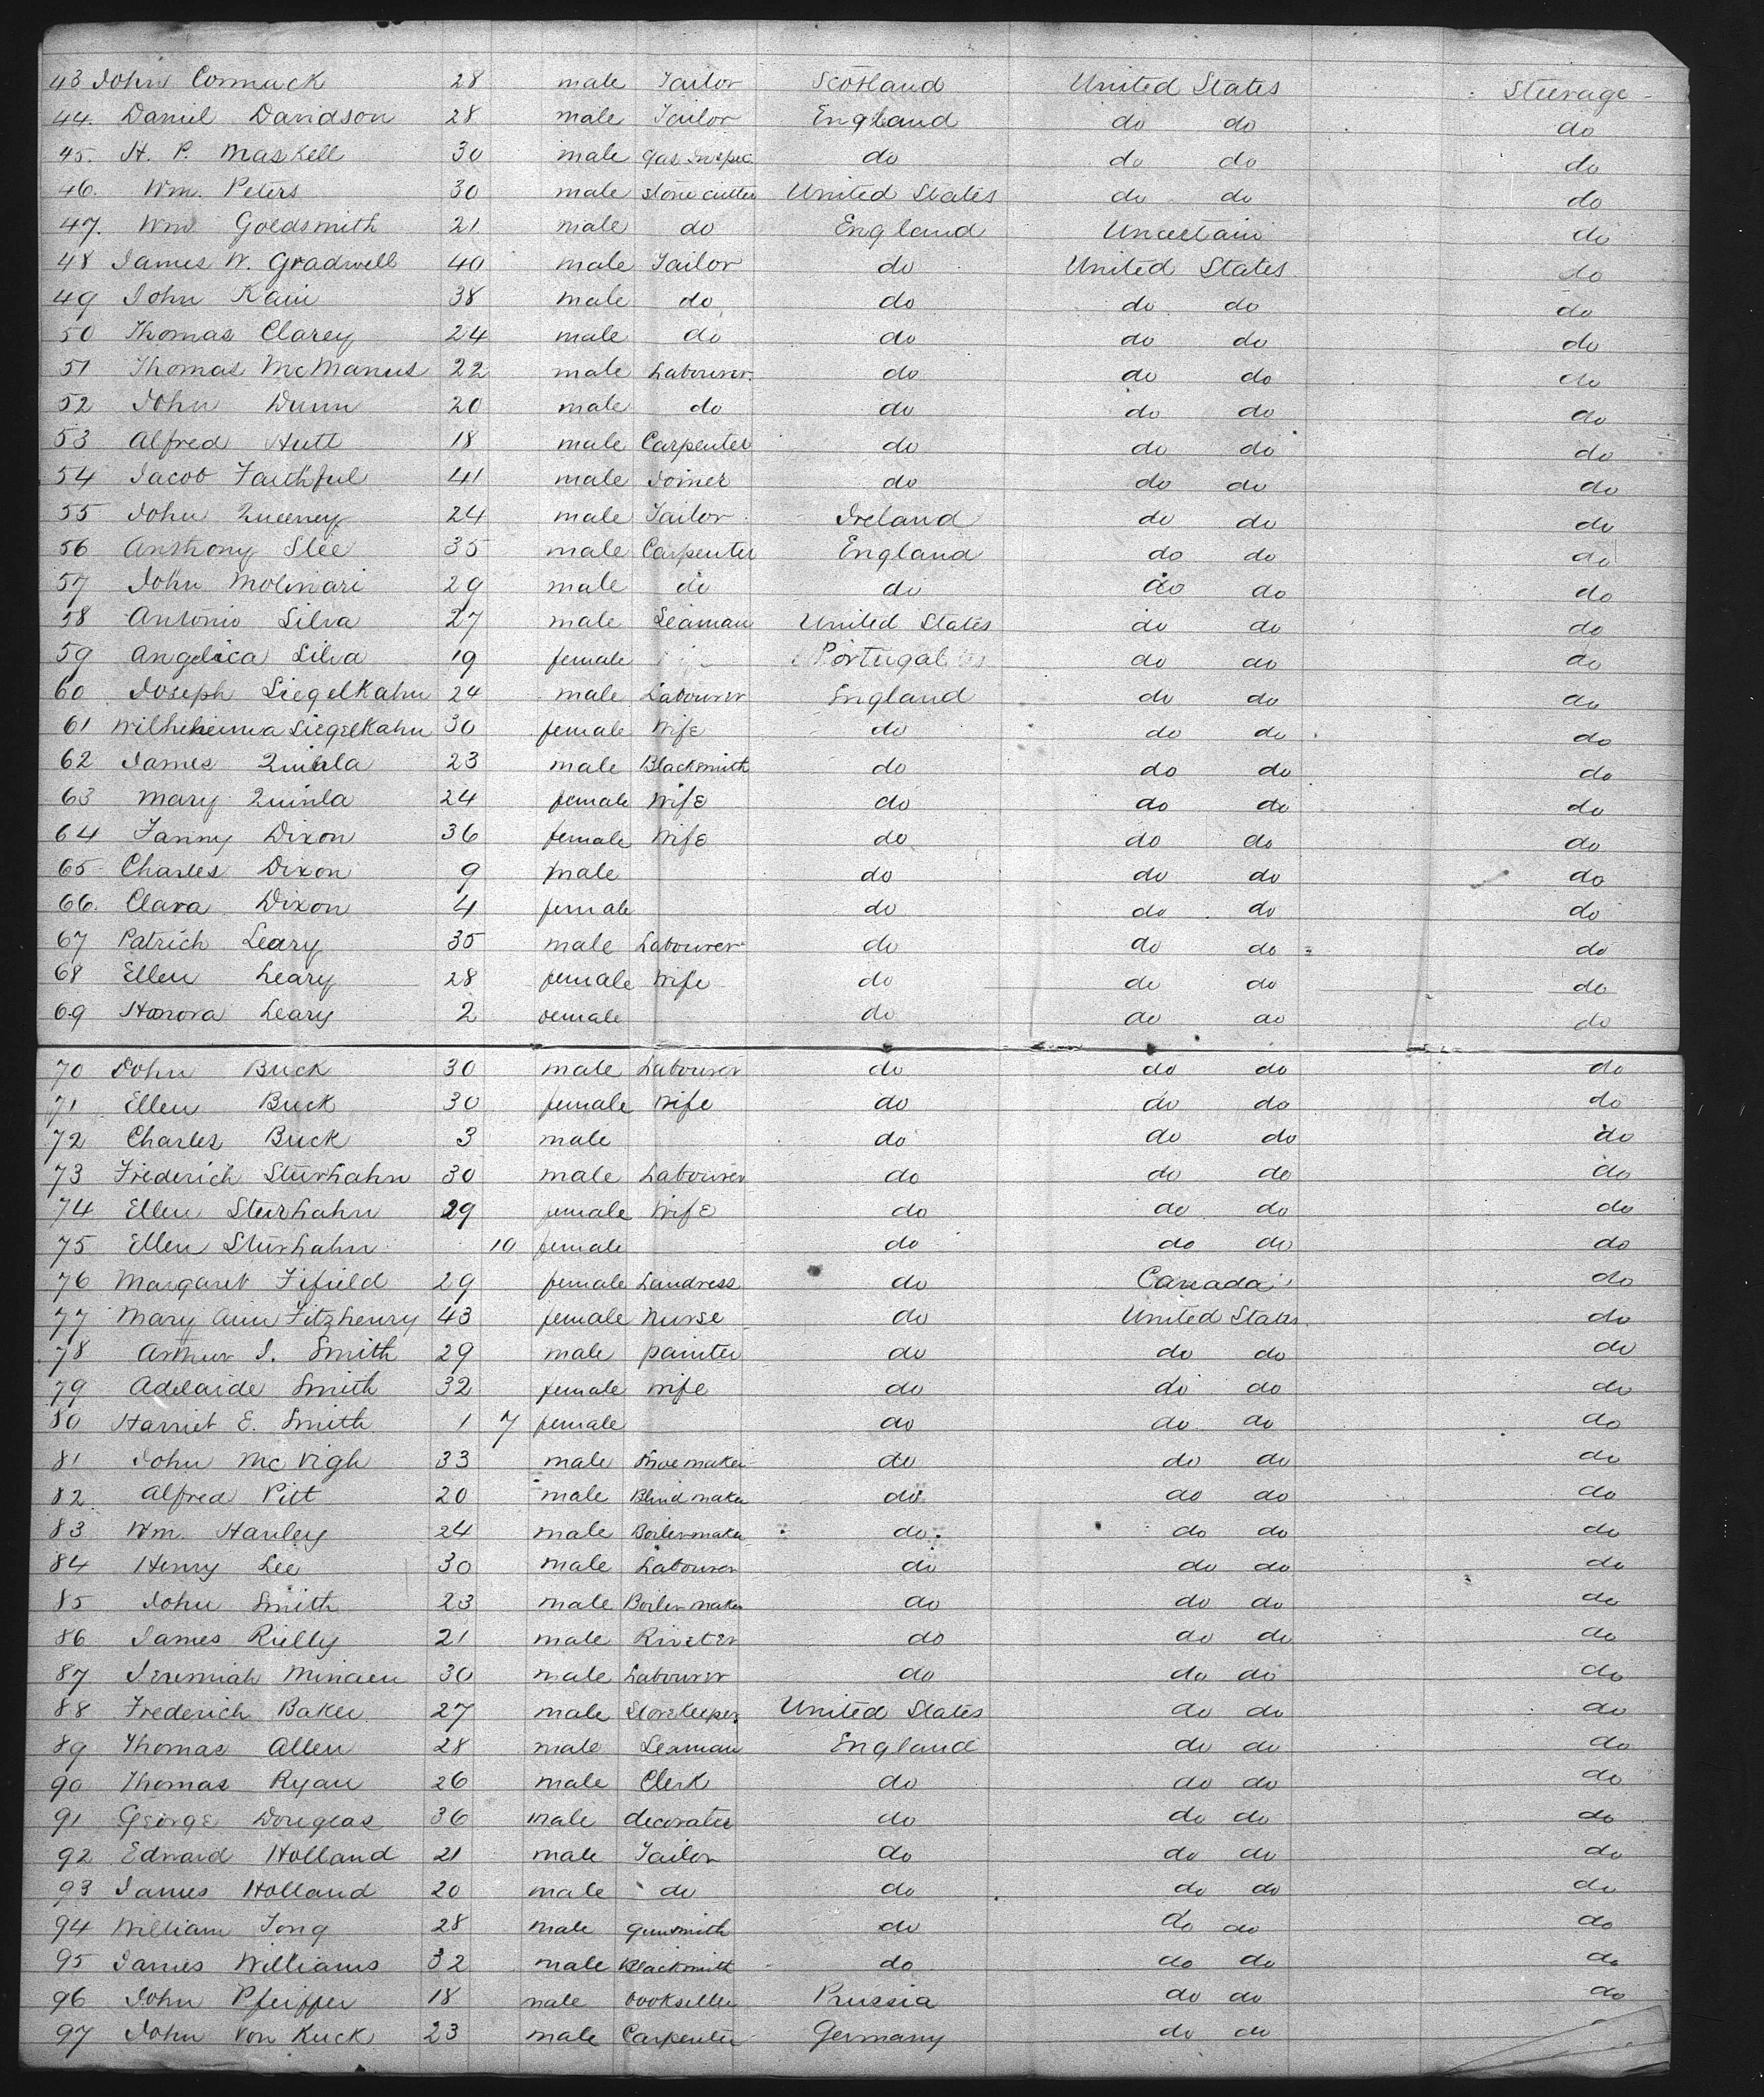 43 John Cormack 28 male Tailor Scotland United States Steerage
44. Daniel Davidson 28 male Tailor England do do do
45. H. P. Maskell 30 male Gas Inspec. do do do do
46. Wm. Peters 30 male Stone cutter United States do do do
47. Wm. Goldsmith 21 male do England Uncertain do
48 James W. Gradwell 40 male Tailor do United States do
49 John Kain 38 male do do do do do
50 Thomas Clarey 24 male do do do do do
51 Thomas McManus 22 male Labourer. do do do do
52 John Dunn 20 male do do do do do
53 Alfred Hutt 18 male Carpenter do do do do
54 Jacob Faithful 41 male Joiner do do do do
55 John Queeney 24 male Tailor Ireland do do do
56 Anthony Slee 35 male Carpenter England do do do
57 John Molinari 29 male do do do do do
58 Antonio Silva 27 male Seaman United States do do do
59 Angelica Silva 19 female Portugal do do do
60 Joseph SiegelKahn 24 male Labourer England do do do
61 Wilhelmina SiegelKahn 30 female Wife do do do do
62 James Quinla 23 male Blacksmith do do do do
63 Mary Quinla 24 female Wife do do do do
64 Fanny Dixon 36 female Wife do do do do
65 Charles Dixon 9 male do do do do
66. Clara Dixon 4 female do do do do
67 Patrich Leary 35 male Labourer do do do do
68 Ellen Leary 28 female Wife do do do do
69 Honora Leary 2 female do do do do
70 John Buck 30 male Labourer do do do do
71 Ellen Buck 30 female Wife do do do do
72 Charles Buck 3 male do do do do
73 Frederich Sturhahn 30 male Labourer do do do do
74 Ellen Sturhahn 29 female Wife do do do do
75 Ellen Sturhahn 10 female do do do do
76 Margaret Fifield 29 female Landress do Canada do
77 Mary Ann Fitzhenry 43 female Nurse do United States do
78 Arthur J. Smith 29 male painter do do do do
79 Adelaide Smith 32 female Wife do do do do
80 Harriet E. Smith 1 7 female do do do do
81 John McVigh 33 male Shoemaker do do do do
82 Alfred Pitt 20 male Blind maker do do do do
83 Wm. Hanley 24 male Boilermaker do do do do
84 Henry Lee 30 male Labourer do do do do
85 John Smith 23 male Boiler maker do do do do
86 James Rielly 21 male Riveter do do do do
87 Jeremiah 30 male Labourer do do do do
88 Frederich Baker 27 male Storekeeper United States do do do
89 Thomas Allen 28 male Seaman England do do do
90 Thomas Ryan 26 male Clerk do do do do
91 George Douglas 36 male decorator do do do do
92 Edward Holland 21 male Tailor do do do do
93 James Holland 20 male do do do do do
94 William Tong 28 male Gunsmith do do do do
95 James Williams 32 male Blacksmith do do do do
96 John Pfeiffer 18 male bookseller Prussia do do do
97 John Von Kuck 23 male Carpenter Germany do do